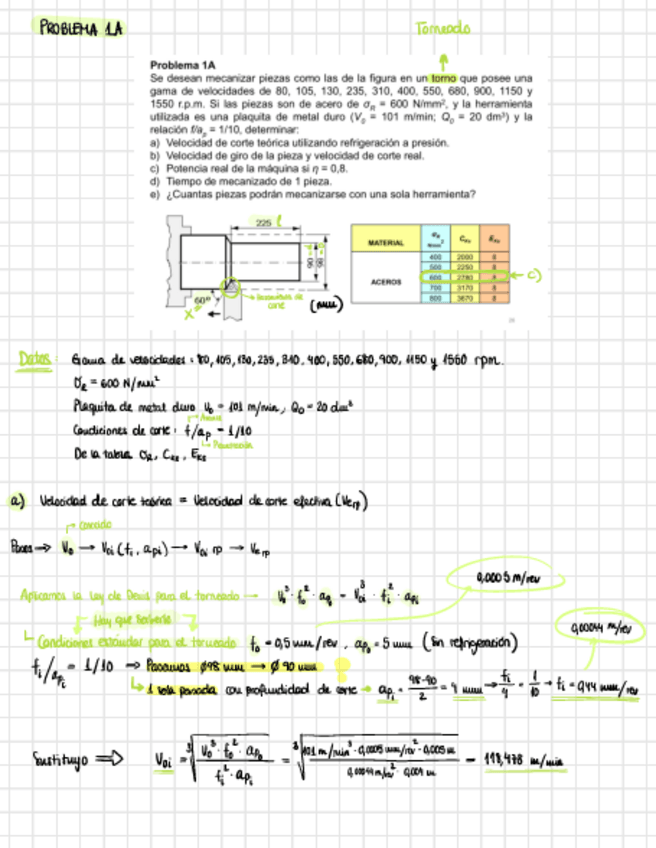 PROBLEMA 1A
Torneado
Problema 1A
Se desean mecanizar piezas como las de la figura en un torno que posee una
gama de velocidades de 80, 105, 130, 235, 310, 400, 550, 680, 900, 1150 y
1550 r.p.m. Si las piezas son de acero de σR = 600 N/mm², y la herramienta
utilizada es una plaquita de metal duro (V₀ = 101 m/min; Q₀ = 20 dm³) y la
relación f/aₚ = 1/10, determinar:
a) Velocidad de corte teórica utilizando refrigeración a presión.
b) Velocidad de giro de la pieza y velocidad de corte real.
c) Potencia real de la máquina si η = 0,8.
d) Tiempo de mecanizado de 1 pieza.
e) ¿Cuantas piezas podrán mecanizarse con una sola herramienta?
225 l
90
98
60°
X
corte
(mm)
MATERIAL
ACEROS
400 2000 8
500 2250 8
600 2780 8
700 3170 8
800 3670 8
c)
Datos: Gama de velocidades: 80, 105, 130, 235, 310, 400, 550, 680, 900, 1150 y 1560 rpm.
σR = 600 N/mm²
Plaquita de metal duro V₀ = 101 m/min, Q₀ = 20 dm³
Avance
Condiciones de corte: f/aₚ = 1/10
Penetración
De la tabla σR, CKs, EKs
a) Velocidad de corte teórica = Velocidad de corte efectiva (Verp)
Conocido
Pasos ⇒ V₀ → Voi (fi, api) → Voi rp → Verp
0,0005 m/rev
Aplicamos la Ley de Denis para el torneado → V₀³ · f₀² · a₀ = Voi³ · fi² · api
Hay que saberlo
0,00044 m/rev
Condiciones estándar para el torneado f₀ = 0,5 mm/rev, ap₀ = 5 mm (Sin refrigeración)
fi/api = 1/10 ⇒ Pasamos ϕ98 mm → ϕ 90 mm
1 sola pasada con profundidad de corte → api = 98-90/2 = 4 mm → fi/4 = 1/10 → fi = 0,44 mm/rev
Sustituyo ⇒ Voi = ³√(V₀³ · f₀² · ap₀ / fi² · api) = ³√(101 m/min³ · 0,0005 mm/rev² · 0,005 m / 0,00044 m/rev² · 0,004 m) = 118,478 m/min